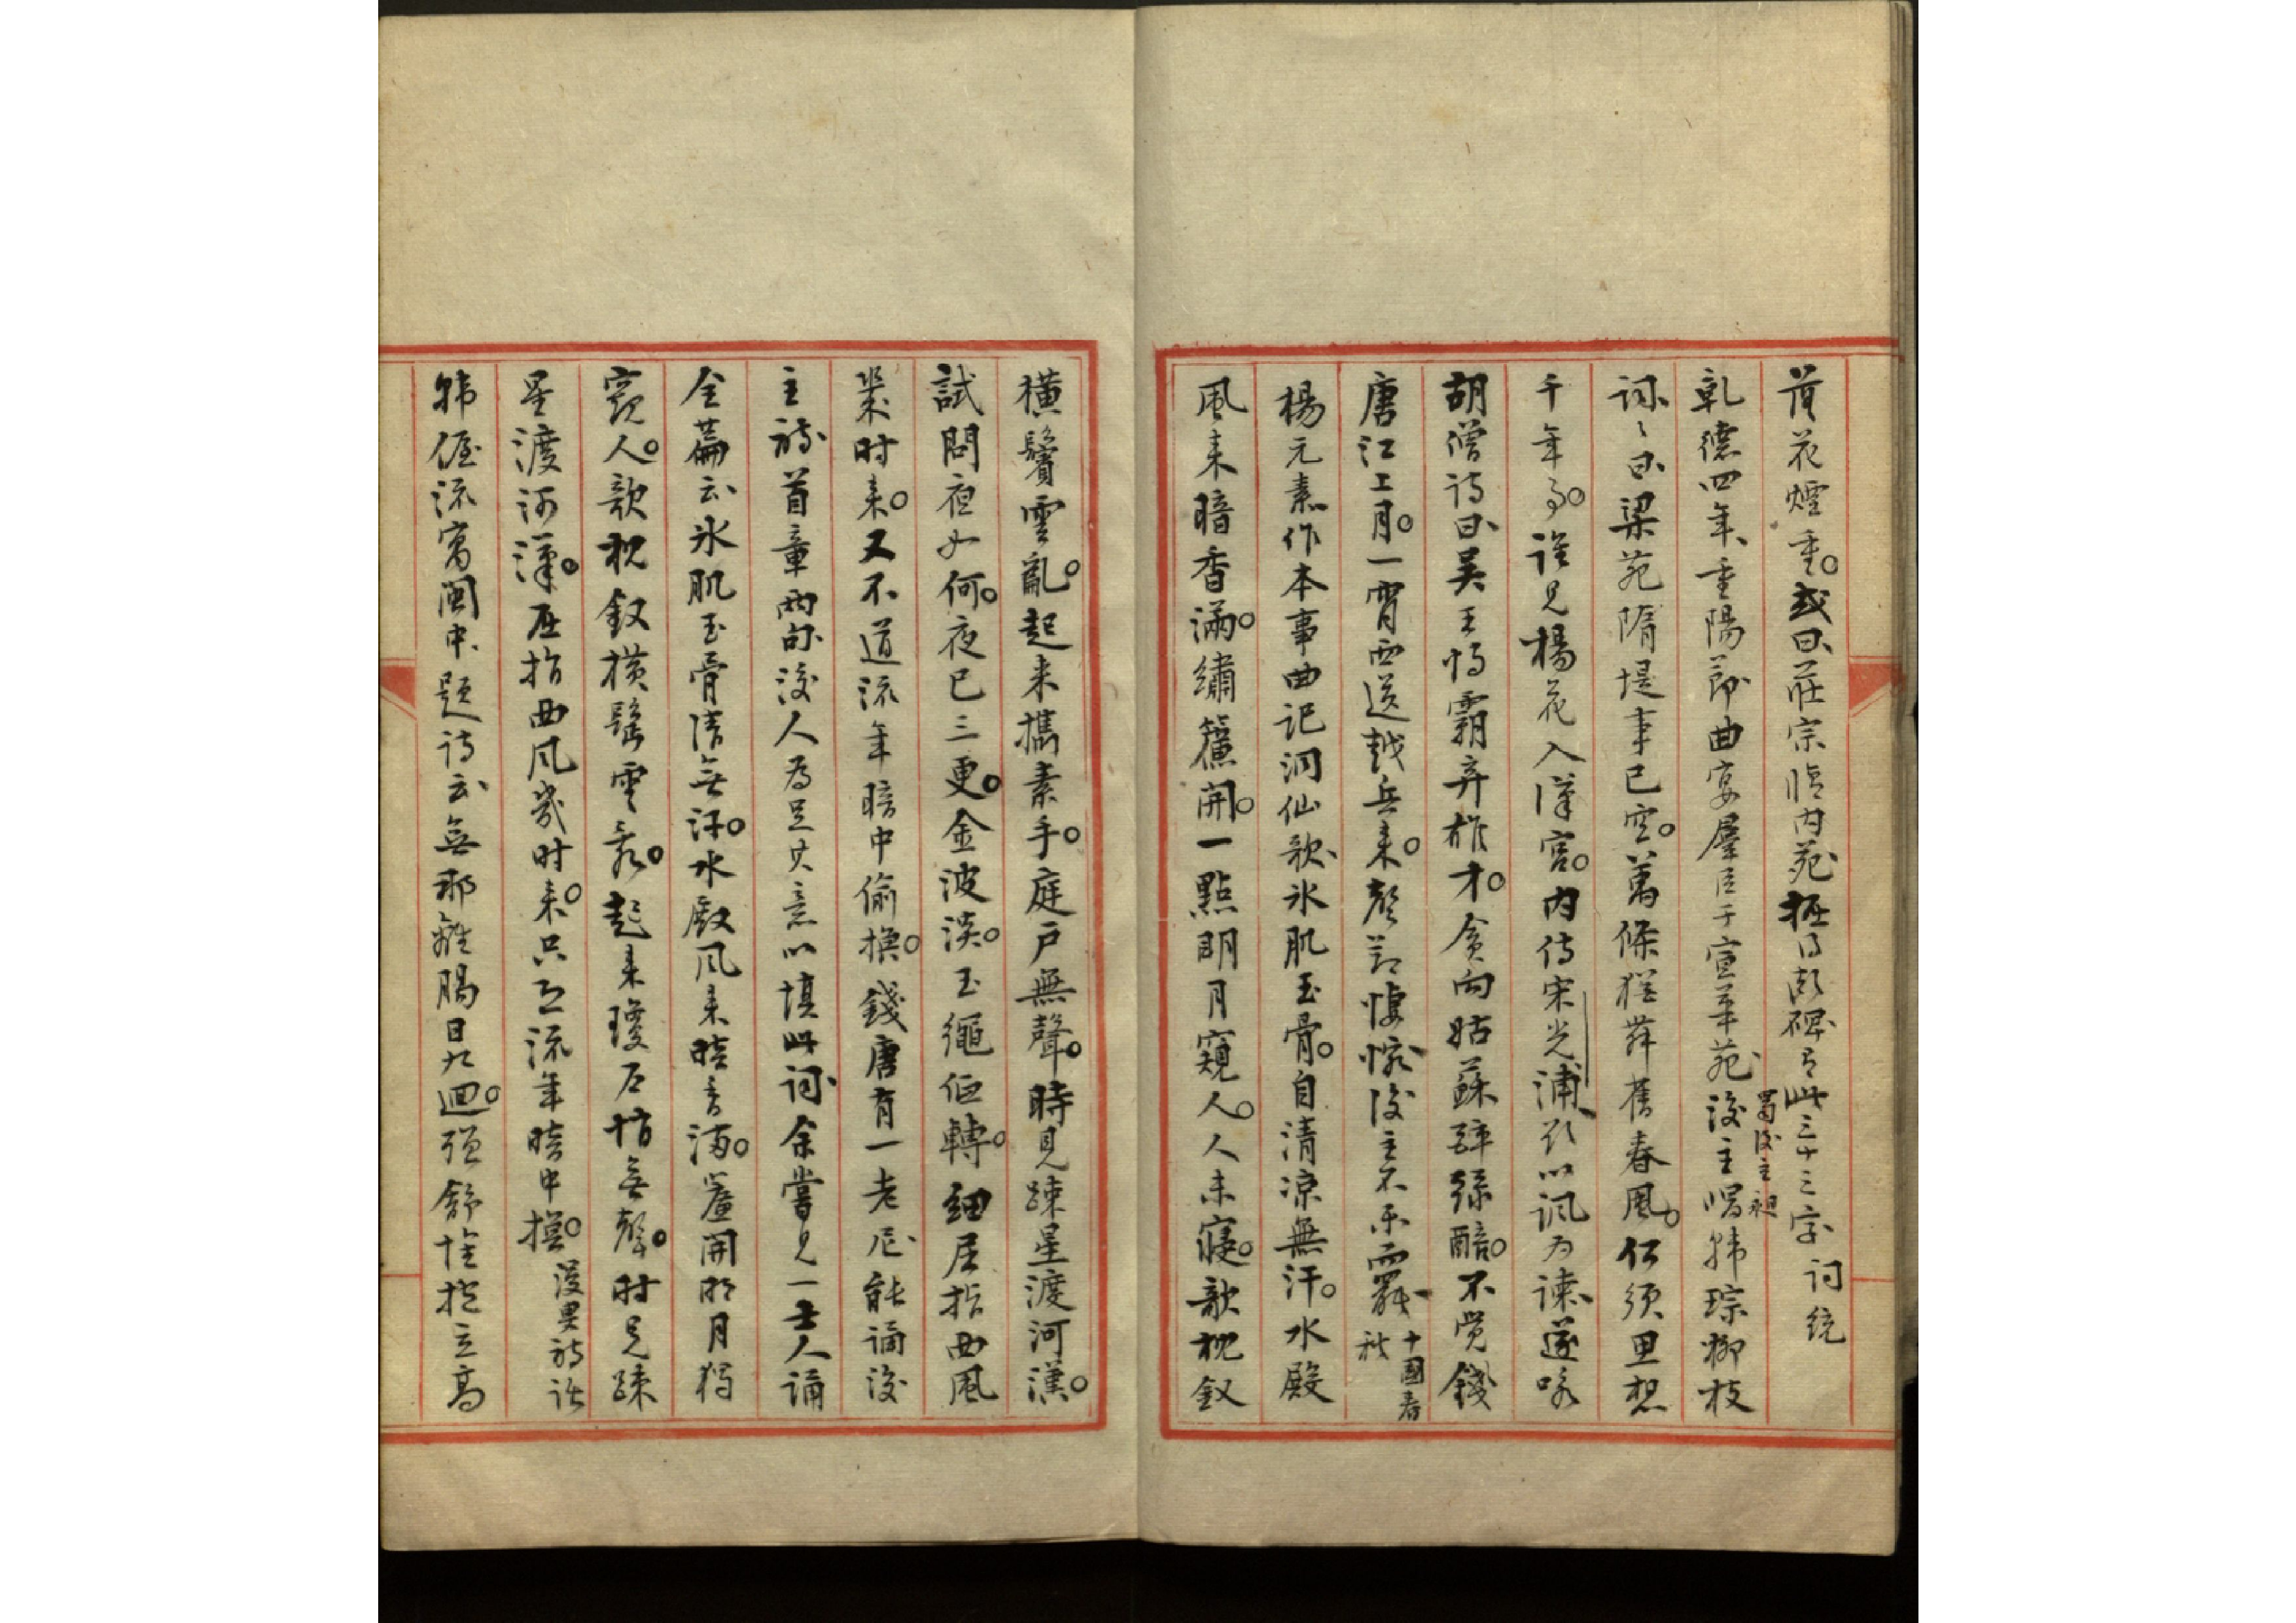 落花煙重。或曰莊宗臨内苑掘得斷碑有此三十三字 詞統
乾德四年、重陽節曲宴羣臣于宣華苑後主唱韩琮柳枝
蜀後主昶
詞、曰梁苑隋堤事已空。萬條猶舞舊春風。何須思想
千年事。誰見楊花入漢宮。内侍宋光浦、欲以諷为諫遂咏
胡僧诗曰吴王恃霸弃雄才。貪向姑蘇醉綠醅。不觉錢
唐江上月。一宵西送越兵来。聲韵悽惋後主不乐而罷 十國春秋
楊元素作本事曲記洞仙歌、氷肌玉骨。自清涼無汗。水殿
風来暗香滿。繡簾開。一點明月窺人。人未寢。欹枕釵
橫鬢雲亂。起来攜素手。庭戶無聲。時見踈星渡河漢。
試問夜如何。夜已三更。金波淡。玉繩低轉。細屈指西風
幾时来。又不道流年暗中偷換。錢唐有一老尼能誦後
主詩首章兩句後人为足其意以填此詞余嘗見一士人誦
全篇云氷肌玉骨清無汗。水殿风来暗香满。簾開明月獨
窺人。欹枕釵橫鬢雲亂。起来瓊户悄無聲。时见踈
星渡河漢。屈指西风幾时来。只恐流年暗中換。 漫叟詩話
韩偓流寓閩中、題诗云無那離腸日九迴。强舒懷抱立高